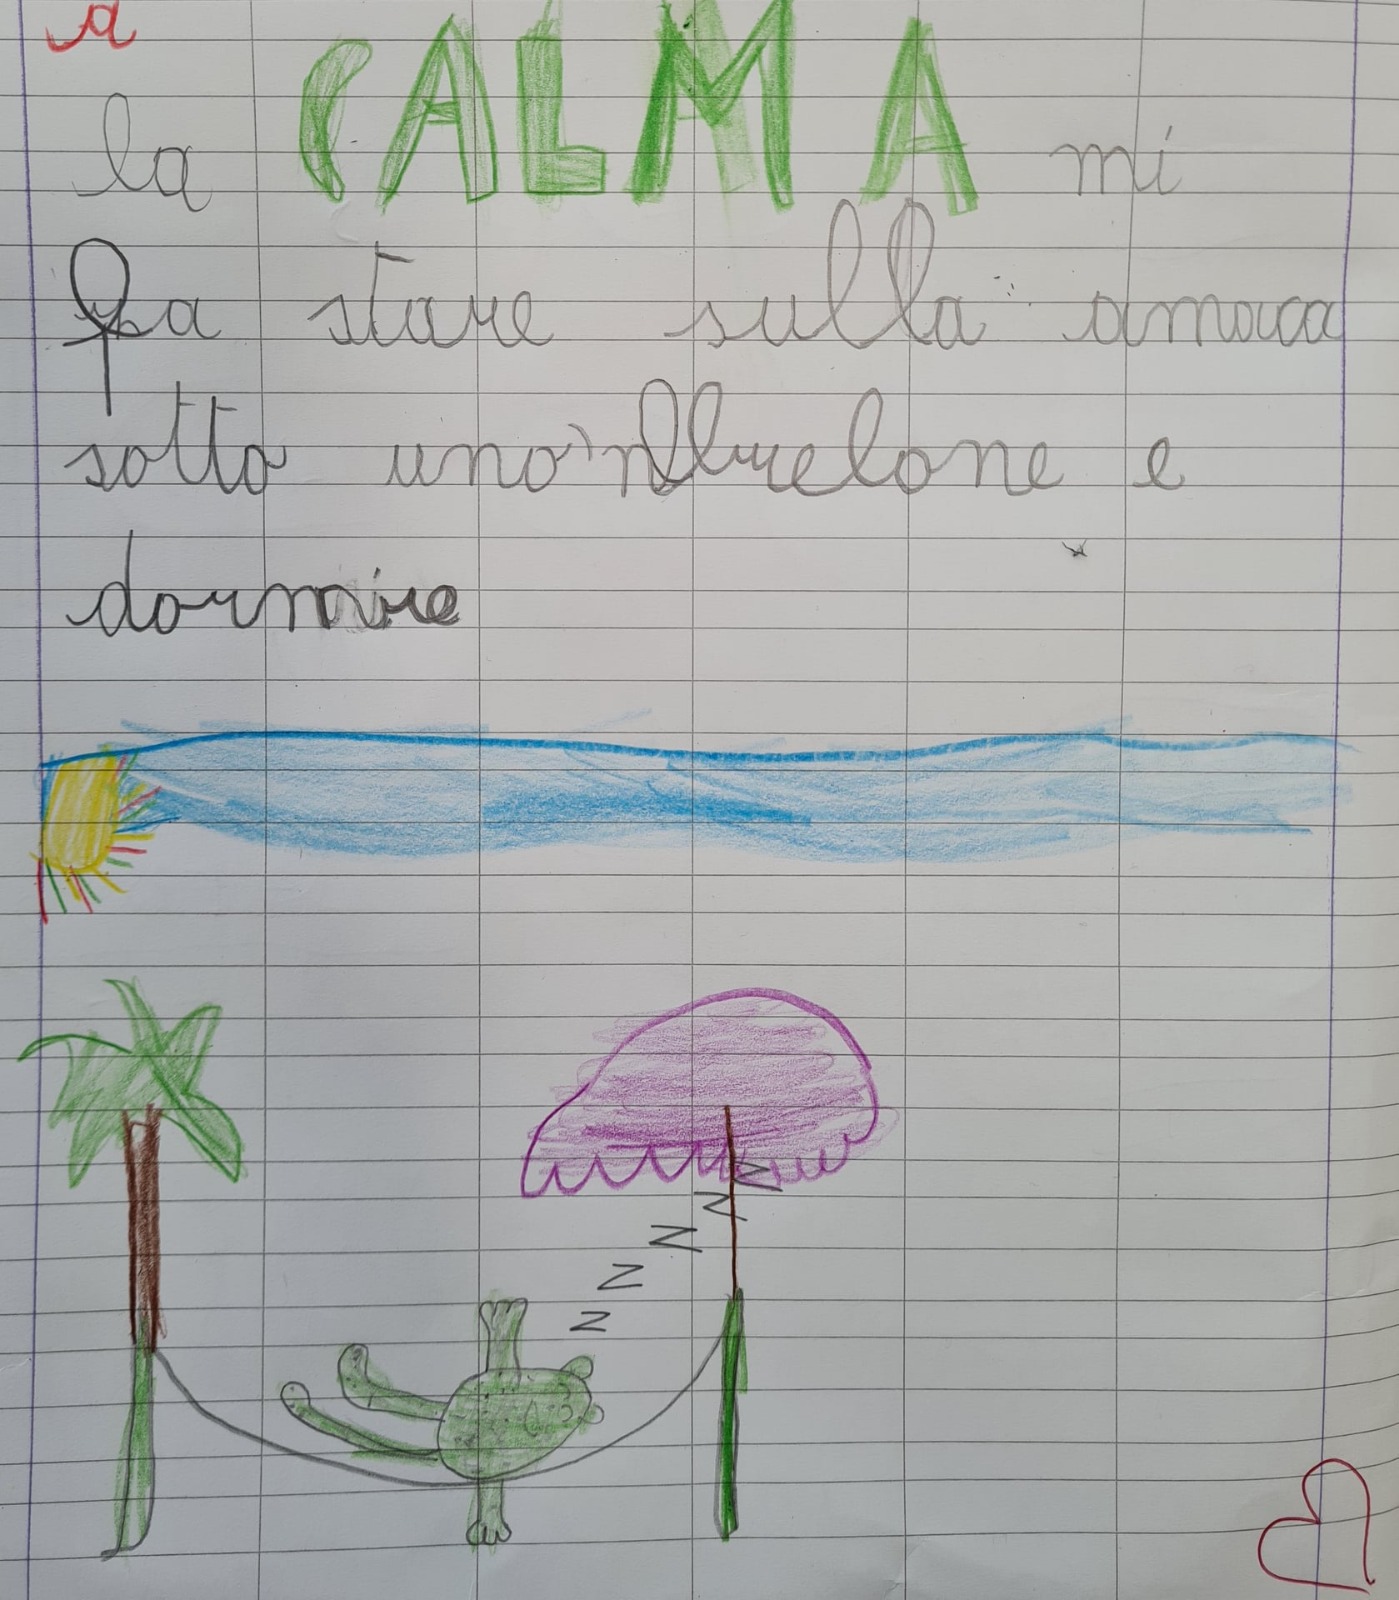 a
la CALMA mi
fa stare sulla amaca
sotto un'ombrelone e
dormire
Z
Z
Z
Z
Z